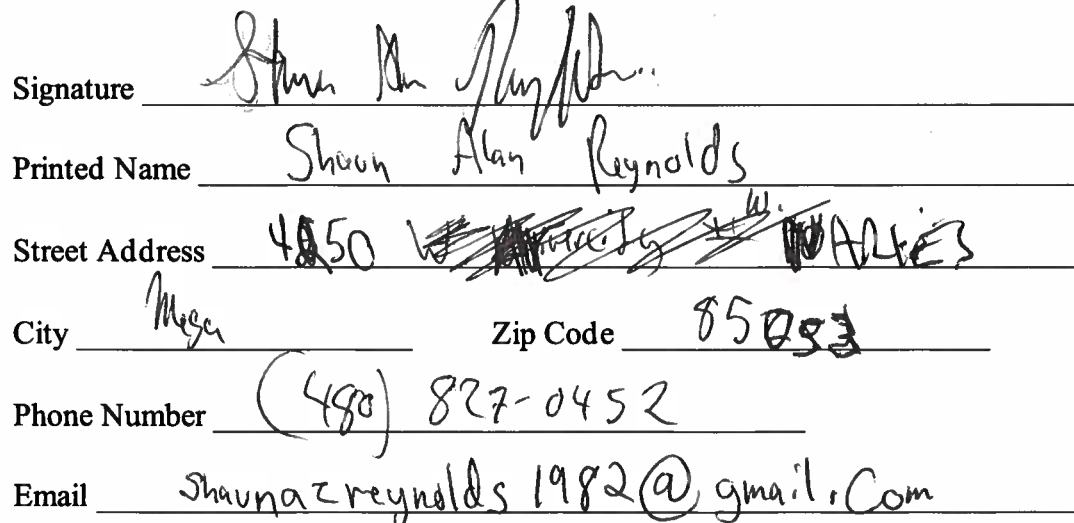 Signature
Printed Name Shaun Alan Reynolds
Street Address 50 W.
City Mesa Zip Code 85
Phone Number (480) 827-0452
Email shaunazreynolds1982@gmail.com